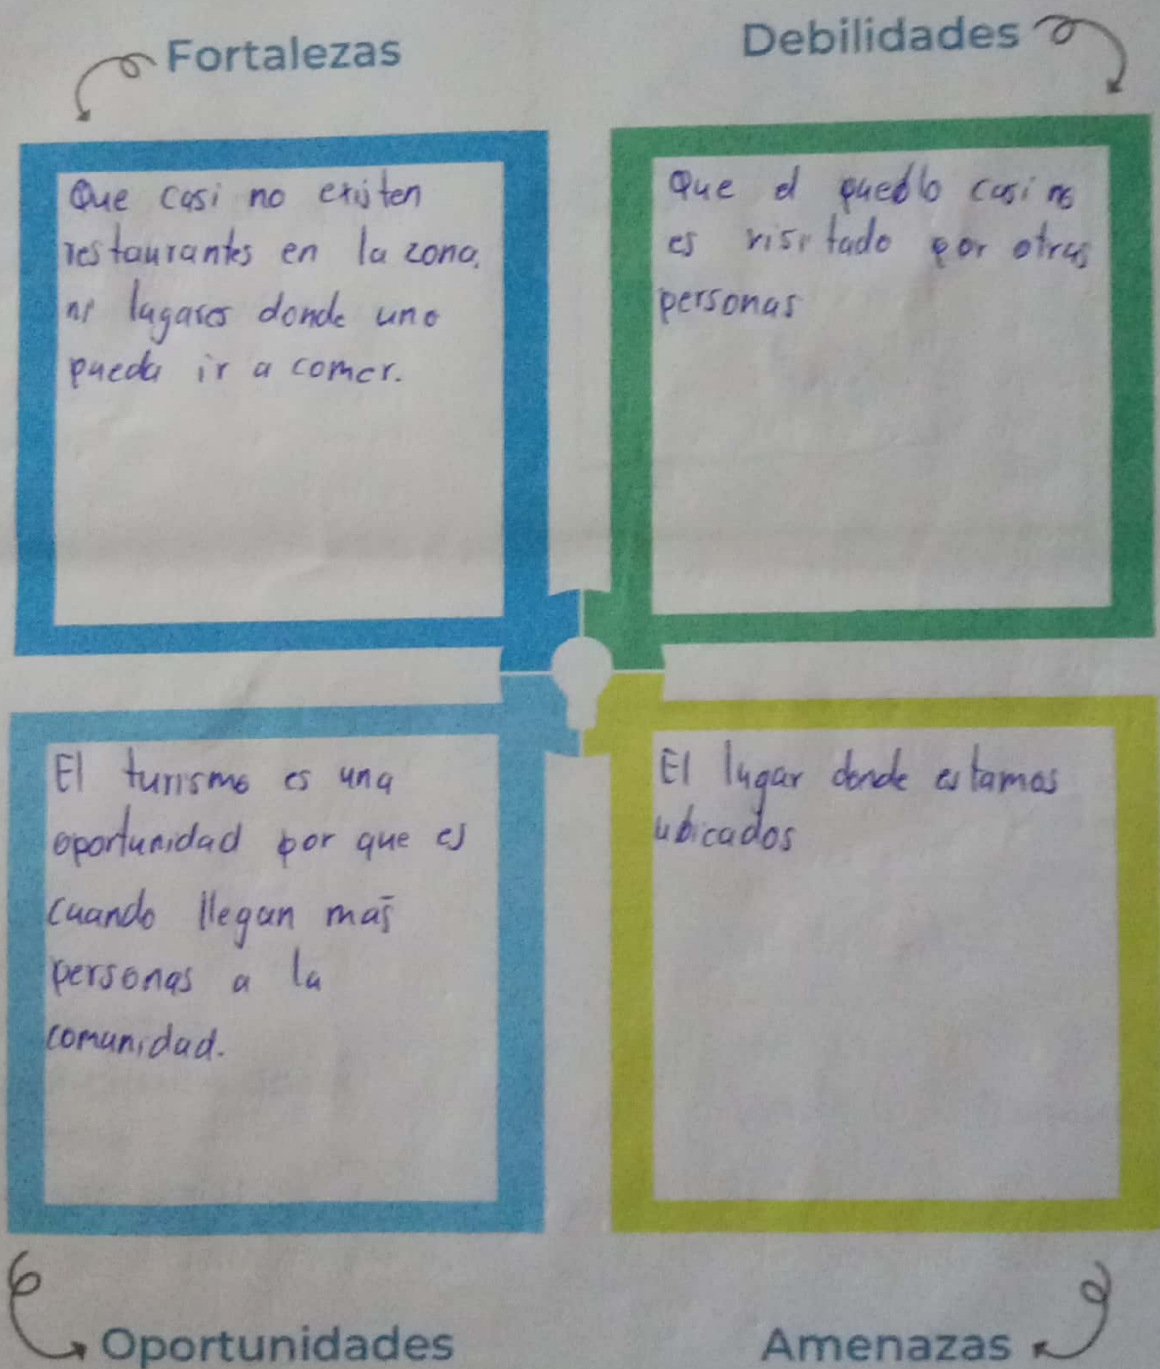 Fortalezas
Que casi no existen
restaurantes en la zona,
ni lugares donde uno
pueda ir a comer.
Debilidades
Que el pueblo casi no
es visitado por otras
personas
El turismo es una
oportunidad por que es
cuando llegan más
personas a la
comunidad.
Oportunidades
El lugar donde estamos
ubicados
Amenazas